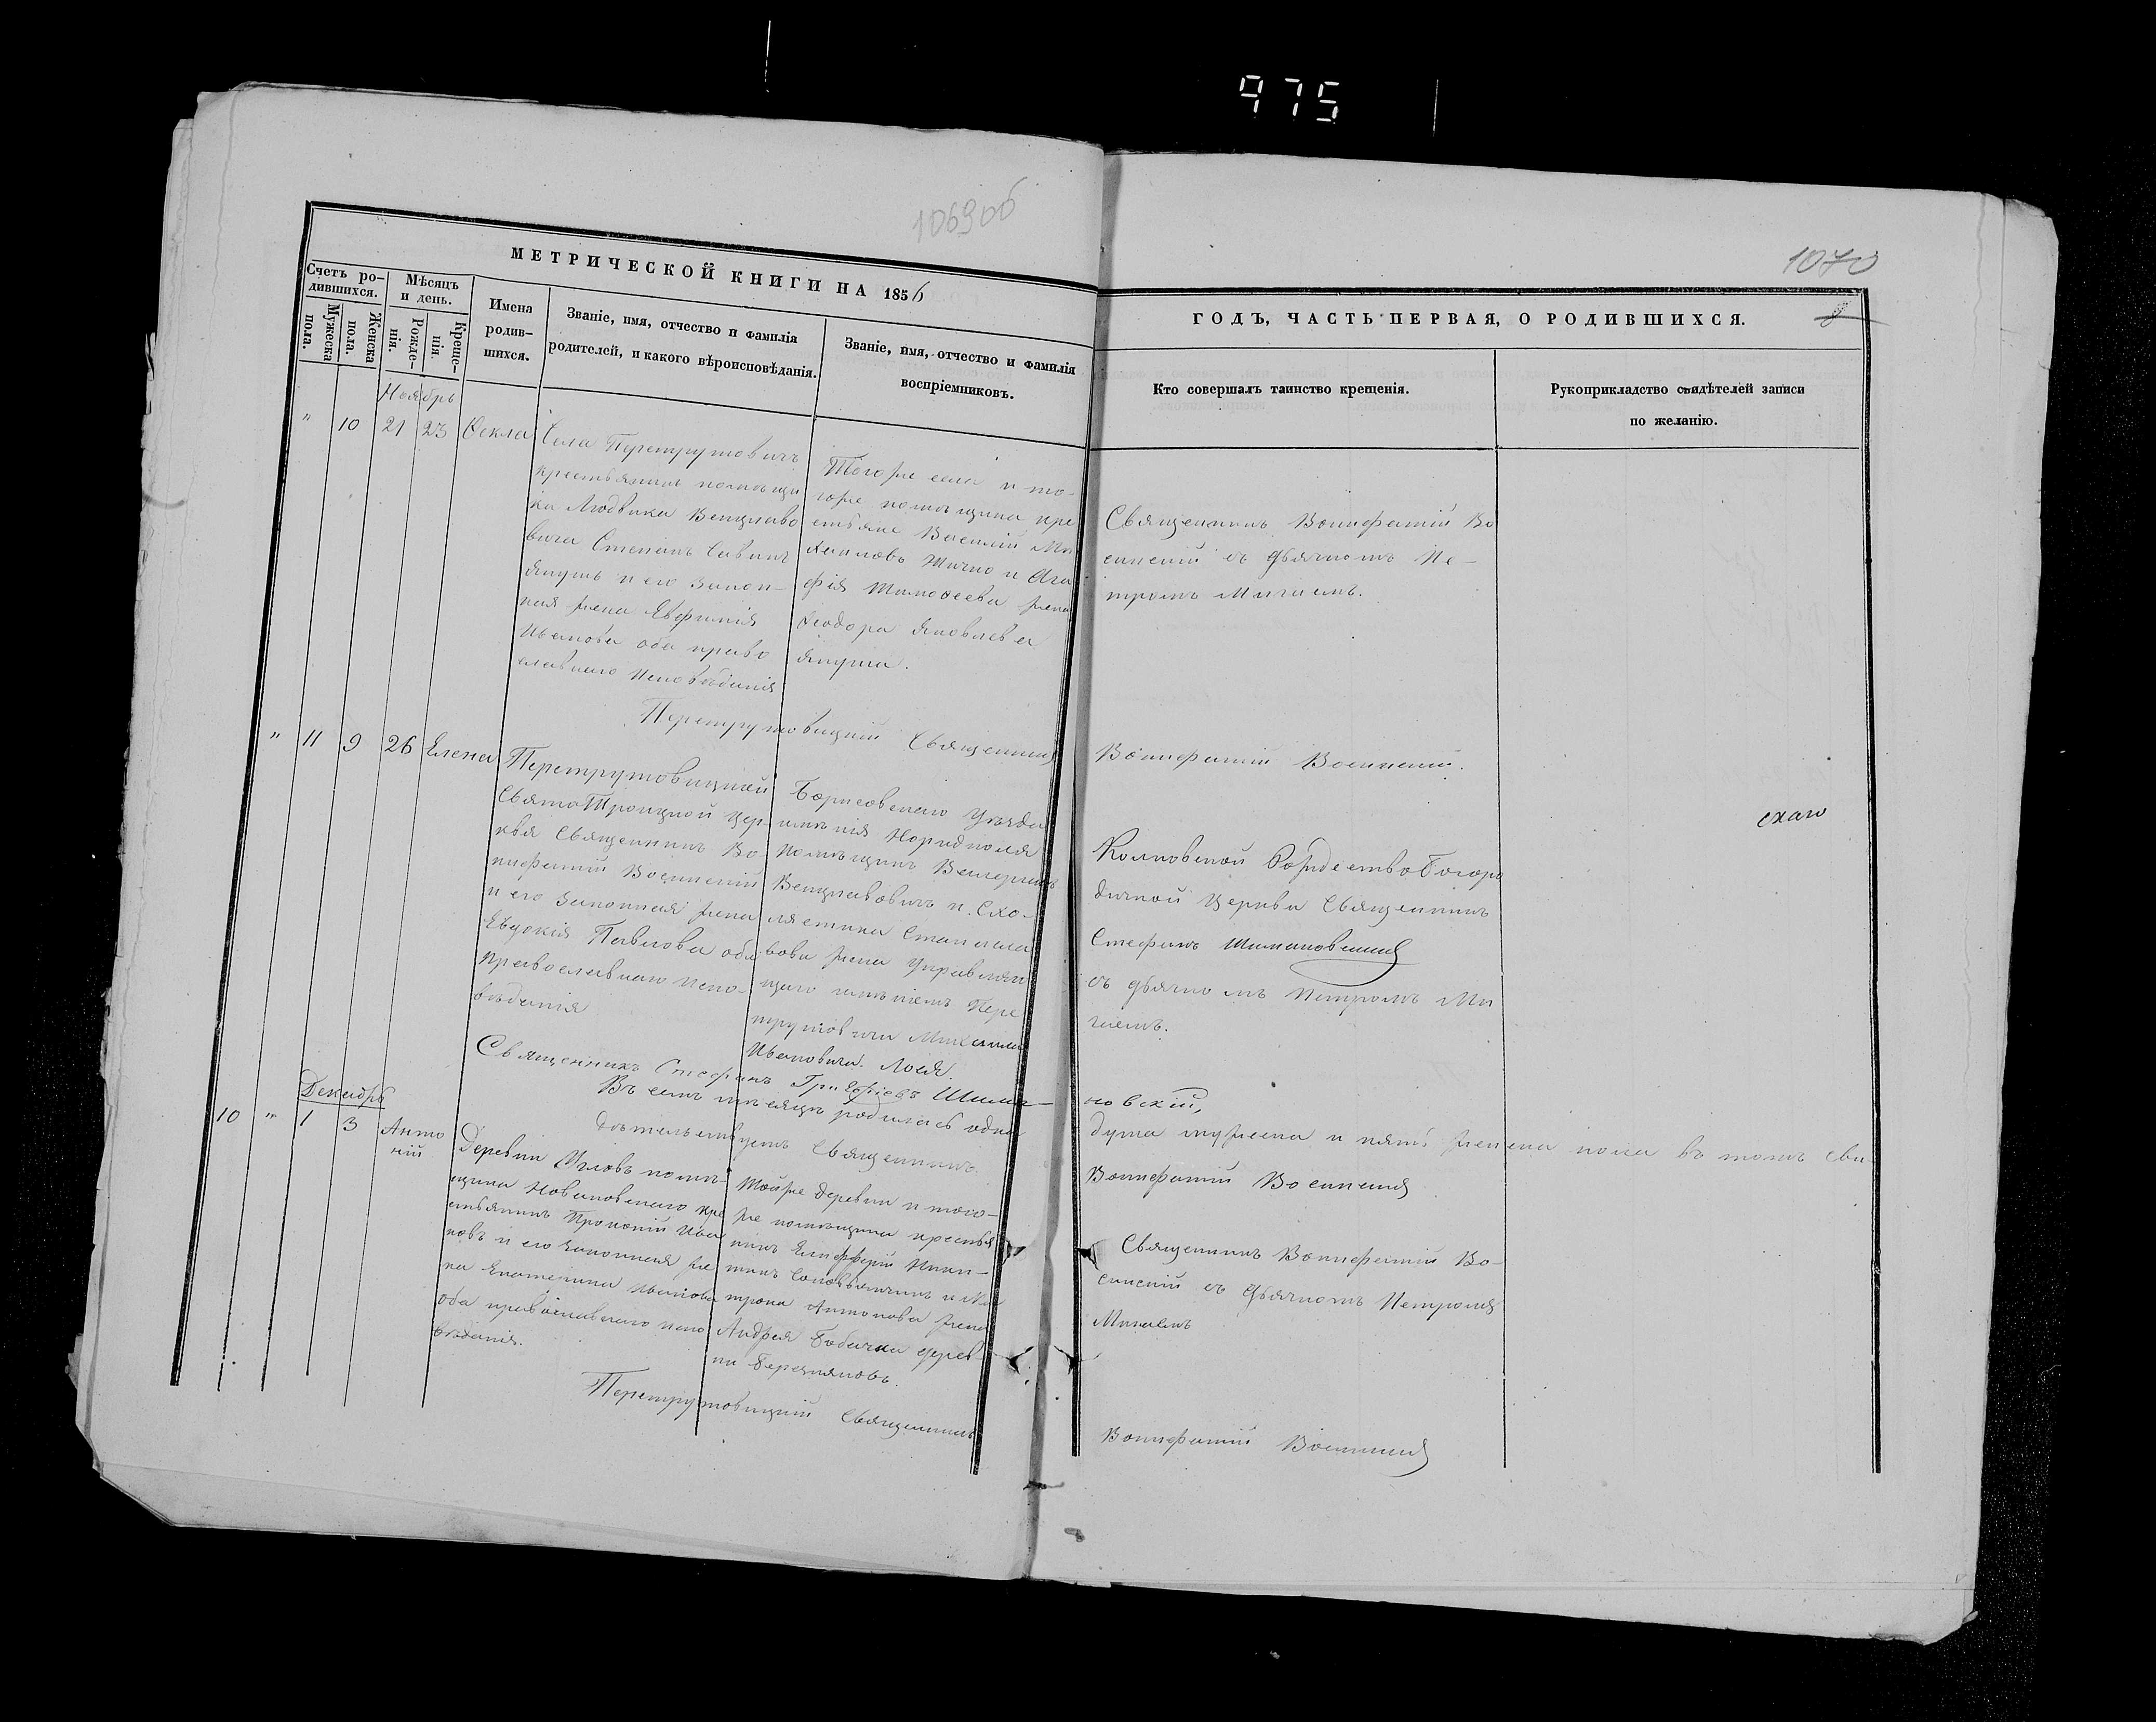 975
106906
1070
8
МЕТРИЧЕСКОЙ КНИГИ НА 1856
ГОДЪ, ЧАСТЬ ПЕРВАЯ, О РОДИВШИХСЯ.
Счетъ ро-
дившихся.
Мужеска
пола.
Женска
пола.
Мѣсяцъ
и день.
Рожде-
нія.
Креще-
нія.
Имена
родив-
шихся.
Званіе, имя, отчество и фамилія
родителей, и какого вѣроисповѣданія.
Званіе, имя, отчество и фамилія
воспріемниковъ.
Кто совершалъ таинство крещенія.
Рукоприкладство свидѣтелей записи
по желанію.
Ноябрь
" 10 21 23 Ѳекла
Села Перетрутовичъ
крестьянинъ помѣщи
ка Людвика Венцлаво
вича Степанъ Савинъ
Янушъ и его закон-
ная жена Евфимія
Иванова оба право
славнаго исповѣданія
Тогоже села и то-
гоже помѣщика кре
стьяне Василій Ми
хаиловъ и Ага
фія Тимоѳеева жена
Ѳеодора Яковлева
Януша.
Священникъ Вонифатій Во
синскій съ дьячкомъ Пе-
тромъ Мигаемъ.
Перетрутовицкій Священникъ
Вонифатій Восинскій.
" 11 9 26 Елена
Перетрутовицкой
СвятоТроицкой Цер
кви Священникъ Во
нифатій Восинскій
и его законная жена
Евдокія Павлова оба
православнаго испо-
вѣданія
Борисовскаго Уѣзда
имѣнія
помѣщикъ
Венцлавовичъ и Схо-
ластика Станисла
вова жена Управляю
щаго имѣніемъ Пере
трутовичи Михаила
Ивановича Лося.
скаго
Колковской РождествоБогоро
дичной Церкви Священникъ
Стефанъ Шимановскій
съ дьячкомъ Петромъ Ми
гаемъ.
Священникъ Стефанъ Григоріевъ Шима-
новскій,
Въ семъ мѣсяцѣ родилась одна
душа мужеска и пять женска пола въ томъ сви
дѣтельствуетъ Священникъ
Вонифатій Восинскій
Декабрь
10 " 1 3 Анто
ній
Деревни Угловъ помѣ-
щика Новаковскаго кре
стьянинъ Прокопій Ива
новъ и его законная же
на Екатерина Иванова
оба православнаго испо
вѣданія.
Тойже деревни и того-
же помѣщика крестья
нинъ Елефферій Ники-
тинъ и Ма
трона Антонова жена
Андрея дерев-
ни Березняковъ.
Священникъ Вонифатій Во-
синскій съ дьячкомъ Петромъ
Мигаемъ
Перетрутовицкій Священникъ
Вонифатій Восинскій